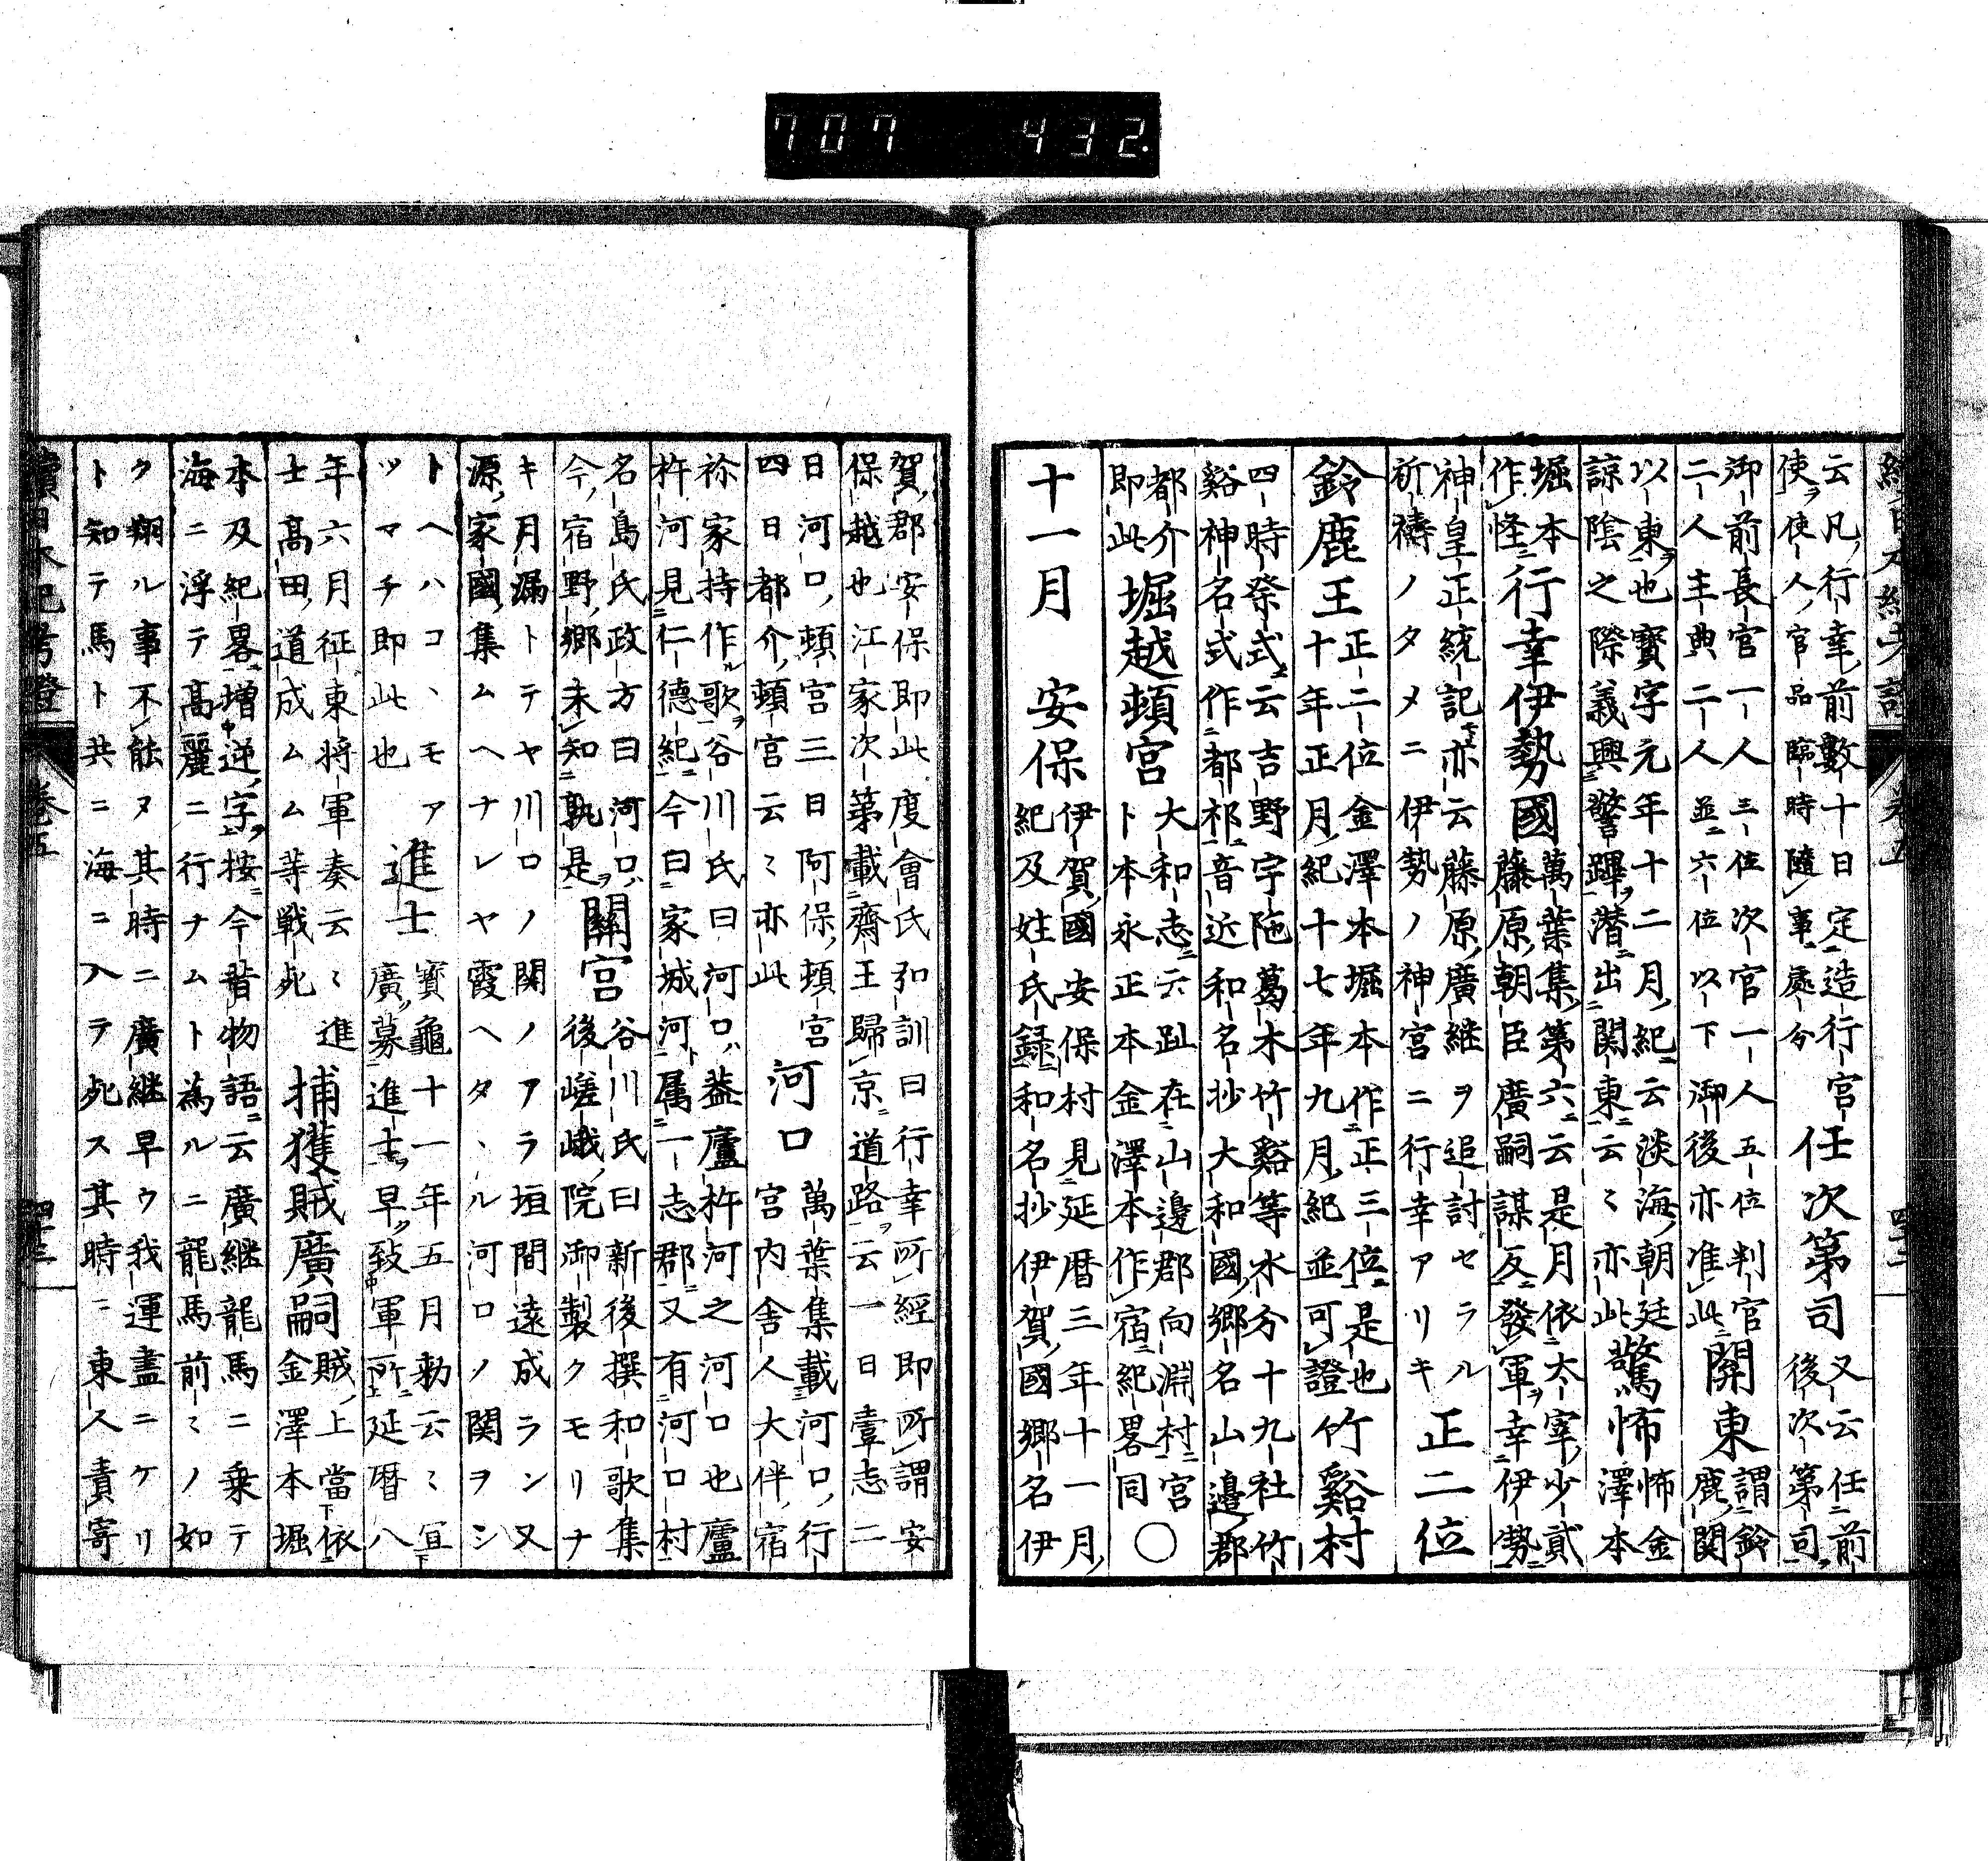 707 432.
續日本紀考證 卷五 四十二
云凡行幸前數十日定造行宮
使使人官品臨時隨事處分
任次第司
又云任前
後次第司
御前長官一人三位次官一人五位判官
二人主典二人並六位以下御後亦准此
關東
謂鈴
鹿関
以東也寶字元年十二月紀云淡海朝廷
諒陰之際義興警蹕潜出関東云〻亦此
驚怖
怖金
澤本
堀本
作怪
行幸伊勢國
萬葉集第六云是月依太宰少貳
藤原朝臣廣嗣謀反發軍幸伊勢
神皇正統記下亦云藤原廣継ヲ追討セラル
祈禱ノタメニ伊勢ノ神宮ニ行幸アリキ
正二位
鈴鹿王
正二位金澤本堀本作正三位是也
十年正月紀十七年九月紀並可證
竹谿村
四時祭式云吉野宇陁葛木竹谿等水分十九社竹
谿神名式作都祁音近和名抄大和國郷名山邊郡
都介
即此
堀越頓宮
大和志云趾在山邊郡向淵村宮
ト本永正本金澤本作宿紀畧同
〇
十一月 安保
伊賀國安保村見延暦三年十一月
紀及姓氏録和名抄伊賀國郷名伊
賀郡安保即此度會氏弘訓曰行幸所經即所謂安
保越也江家次第載齋王歸京道路云一日壹志二
日河口頓宮三日阿保頓宮
四日都介頓宮云〻亦此
河口
萬葉集載河口行
宮内舎人大伴宿
祢家持作歌谷川氏曰河口蓋廬杵河之河口也廬
杵河見仁德紀今曰家城河属一志郡又有河口村
名島氏政方曰河口
今宿野郷未知孰是
關宮
谷川氏曰新後撰和歌集
後嵯峨院御製クモリナ
キ月漏トテヤ川口ノ関ノアラ垣間遠成ラン又
源家國集ムヘナレヤ霞ヘタヽル河口ノ関ヲシ
トヘハコヽモア
ツマチ即此也
進士
寶龜十一年五月勅云〻宜
廣募進士早致軍所延暦八
年六月征東将軍奏云〻進
士高田道成ムムム等戦死
捕獲賊廣嗣
賊上當依
金澤本堀
本及紀畧增逆字按今昔物語云廣継龍馬ニ乗テ
海ニ浮テ高麗ニ行ナムト為ルニ龍馬前〻ノ如
ク翔ル事不能ヌ其時ニ廣継早ウ我運盡ニケリ
ト知テ馬ト共ニ海ニ入テ死ス其時ニ東人責寄
續日本紀考證 卷五 四十三